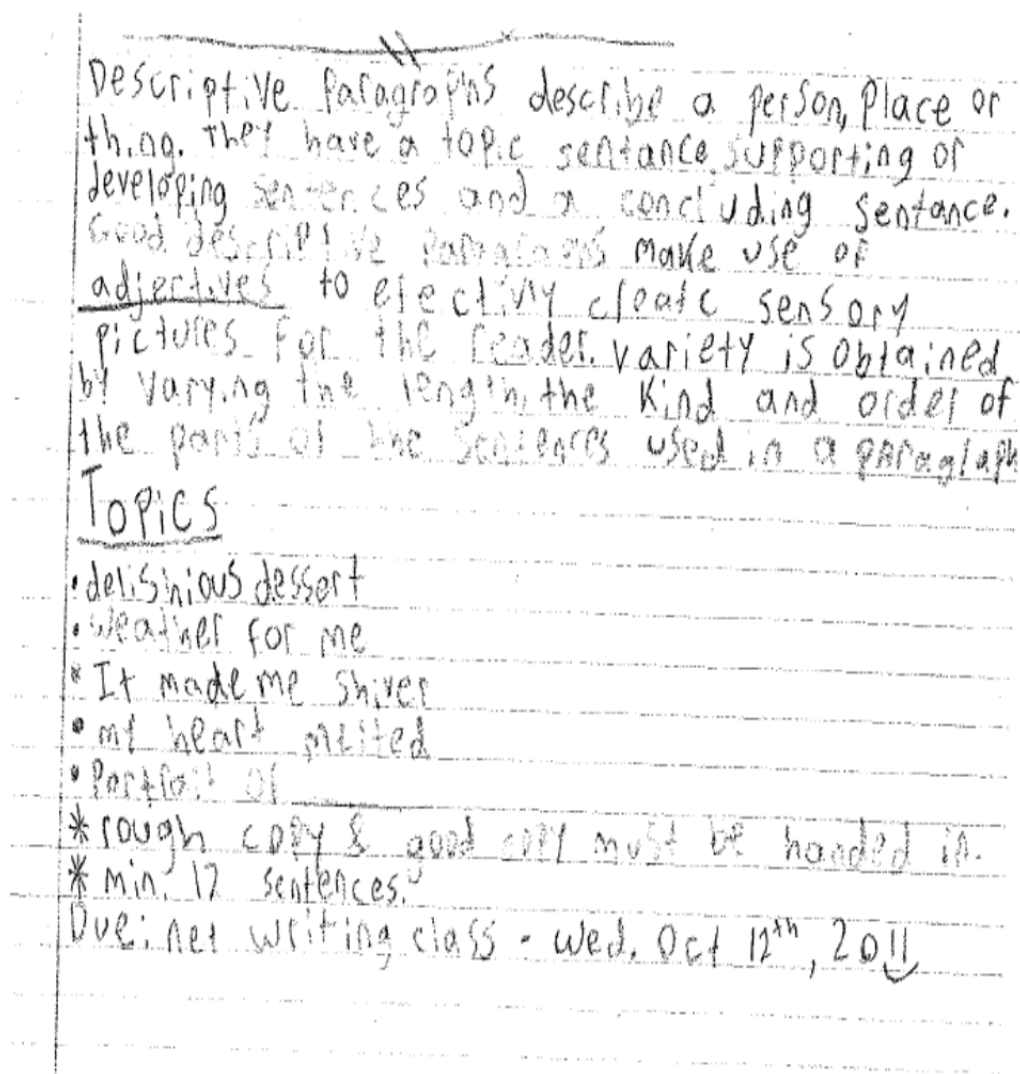 Descriptive Paragraphs describe a person, place or
thing. They have a topic sentance, supporting or
developing sentences and a concluding sentance.
Good descriptive paragraphs make use of
adjectives to efectivly cleatc sensory
pictures for the reader. Variety is obtained
by varying the length, the kind and order of
the parts of the sentences used in a paragraph
Topics
• delishious dessert
• weather for me
* It made me shiver
• my heart melted
• Portrait of ______
* rough copy & good copy must be handed in.
* min. 12 sentences.
Due: net writing class - wed. Oct 12th, 2011